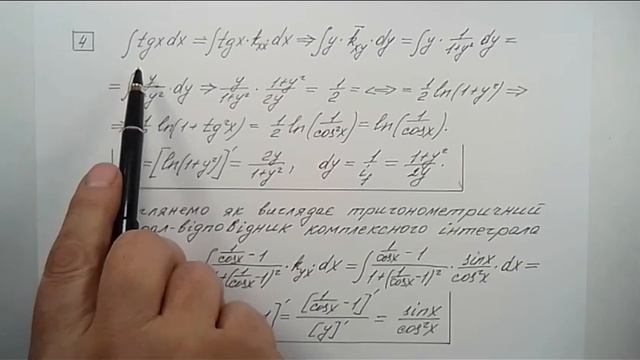 4 ∫tgxdx = ∫tgx·k̅xy·dx ⇒ ∫y·k̅xy·dy = ∫y·1/(1+y²) dy =
= ∫ y/(1+y²)·dy ⇒ y/(1+y²)·(1+y²)/2y = 1/2 = <=> = 1/2 ln(1+y²) ⇒
⇒ 1/2 ln(1+tg²x) = 1/2 ln(1/cos²x) = ln(1/cosx).
= [ln(1+y²)]' = 2y/(1+y²), dy = 1/i₁ = (1+y²)/2y.
як виглядає тригонометричний
відповідник комплексного інтеграла
∫(1/cosx -1)/(1+(1/cosx -1)²)·kyx·dx = ∫(1/cosx -1)/(1+(1/cosx -1)²)·sinx/cos²x·dx =
]' = [1/cosx -1]'/[y]' = sinx/cos²x